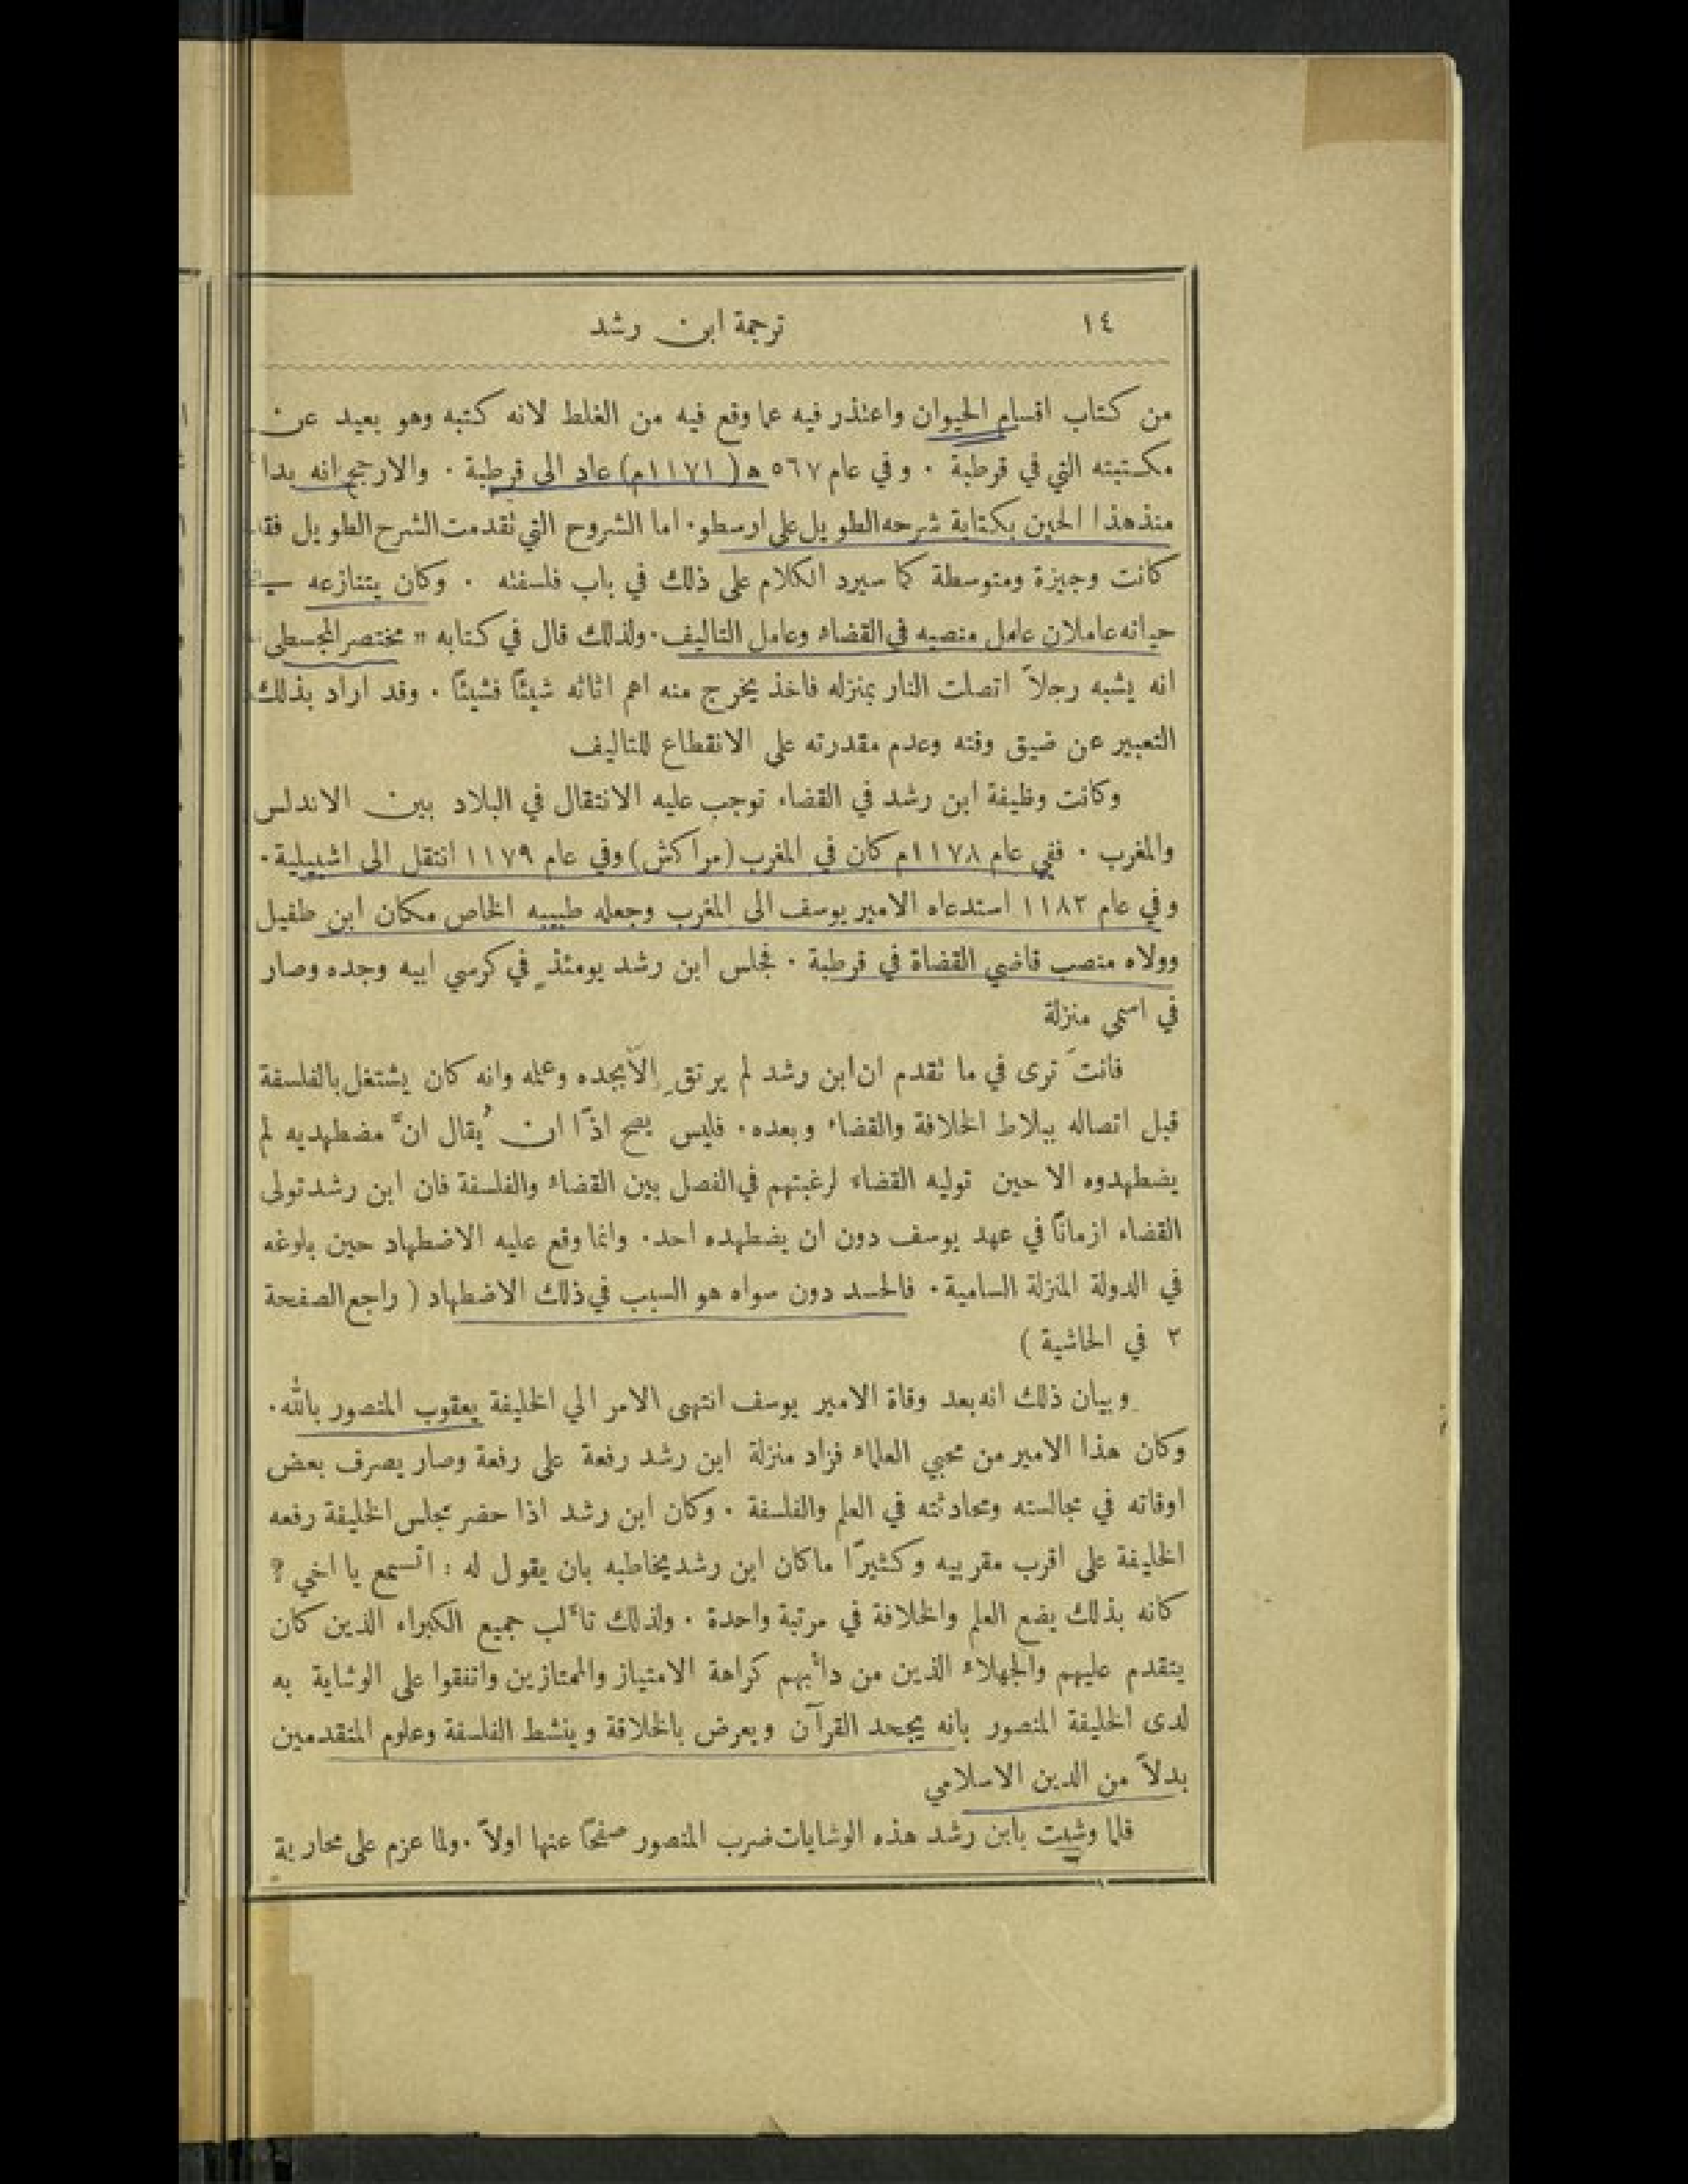 ١٤
ترجمة ابن رشد
من كتاب اقسام الحيوان واعتذر فيه عما وقع فيه من الغلط لانه كتبه وهو بعيد عن
مكتبته التي في قرطبة . وفي عام ٥٦٧ ه (١١٧١م) عاد الى قرطبة . والارجح انه بدا
منذ هذا الحين بكتابة شرحه الطويل على ارسطو. اما الشروح التي تقدمت الشرح الطويل فقد
كانت وجيزة ومتوسطة كما سيرد الكلام على ذلك في باب فلسفته . وكان يتنازعه في
حياته عاملان عامل منصبه في القضاء وعامل التاليف. ولذلك قال في كتابه « مختصر المجسطي
انه يشبه رجلاً اتصلت النار بمنزله فاخذ يخرج منه اهم اثاثه شيئًا فشيئًا . وقد اراد بذلك
التعبير عن ضيق وقته وعدم مقدرته على الانقطاع للتاليف
وكانت وظيفة ابن رشد في القضاء توجب عليه الانتقال في البلاد بين الاندلس
والمغرب . ففي عام ١١٧٨م كان في المغرب (مراكش) وفي عام ١١٧٩ انتقل الى اشبيلية.
وفي عام ١١٨٢ استدعاه الامير يوسف الى المغرب وجعله طبيبه الخاص مكان ابن طفيل
وولاه منصب قاضي القضاة في قرطبة . فجلس ابن رشد يومئذٍ في كرسي ابيه وجده وصار
في اسمى منزلة
فانتَ ترى في ما تقدم ان ابن رشد لم يرتقِ الاّ بجده وعمله وانه كان يشتغل بالفلسفة
قبل اتصاله ببلاط الخلافة والقضاء وبعده. فليس يصح اذًا ان يُقال انَّ مضطهديه لم
يضطهدوه الا حين توليه القضاء لرغبتهم في الفصل بين القضاء والفلسفة فان ابن رشد تولى
القضاء ازمانًا في عهد يوسف دون ان يضطهده احد. وانما وقع عليه الاضطهاد حين بلوغه
في الدولة المنزلة السامية. فالحسد دون سواه هو السبب في ذلك الاضطهاد ( راجع الصفحة
٢ في الحاشية )
وبيان ذلك انه بعد وفاة الامير يوسف انتهى الامر الي الخليفة يعقوب المنصور بالله.
وكان هذا الامير من محبي العلماء فزاد منزلة ابن رشد رفعة على رفعة وصار يصرف بعض
اوقاته في مجالسته ومحادثته في العلم والفلسفة . وكان ابن رشد اذا حضر مجلس الخليفة رفعه
الخليفة على اقرب مقربيه وكثيرًا ما كان ابن رشد يخاطبه بان يقول له : اتسمع يا اخي ؟
كانه بذلك يضع العلم والخلافة في مرتبة واحدة . ولذلك تأَلب جميع الكبراء الذين كان
يتقدم عليهم والجهلاء الذين من دأبهم كراهة الامتياز والممتازين واتفقوا على الوشاية به
لدى الخليفة المنصور بانه يجحد القرآن ويعرض بالخلافة وينشط الفلسفة وعلوم المتقدمين
بدلاً من الدين الاسلامي
فلما وشيت بابن رشد هذه الوشايات ضرب المنصور صفحًا عنها اولاً . ولما عزم على محاربة